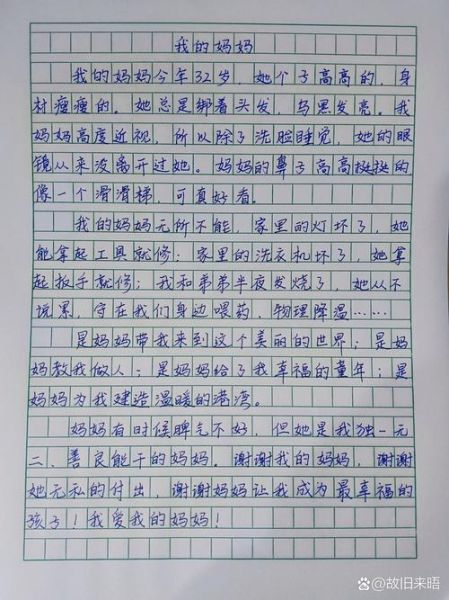 我的妈妈
我的妈妈今年32岁，她个子高高的，身
材瘦瘦的。她总是绑着头发，乌黑发亮。我
妈妈高度近视，所以除了洗脸睡觉，她的眼
镜从来没离开过她。妈妈的鼻子高高挺挺的
像一个滑滑梯，可真好看。
我的妈妈无所不能，家里的灯坏了，她
能拿起工具就修；家里的洗衣机坏了，她拿
起扳手就修；我和弟弟半夜发烧了，她从不
说累，守在我们身边喂药，物理降温……
是妈妈带我来到这个美丽的世界；是妈
妈教我做人；是妈妈给了我幸福的童年；是
妈妈为我建造温暖的港湾。
妈妈有时候脾气不好，但她是我独一无
二、善良能干的妈妈。谢谢我的妈妈，谢谢
她无私的付出，谢谢妈妈让我成为最幸福的
孩子！我爱我的妈妈！
@故旧来晤